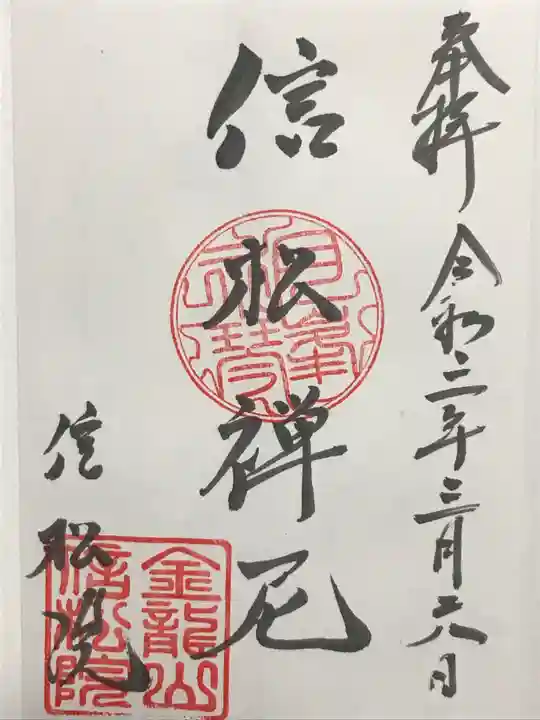 奉拝
令和二年三月二八日
信松禅尼
信松院
金龍山
信松院